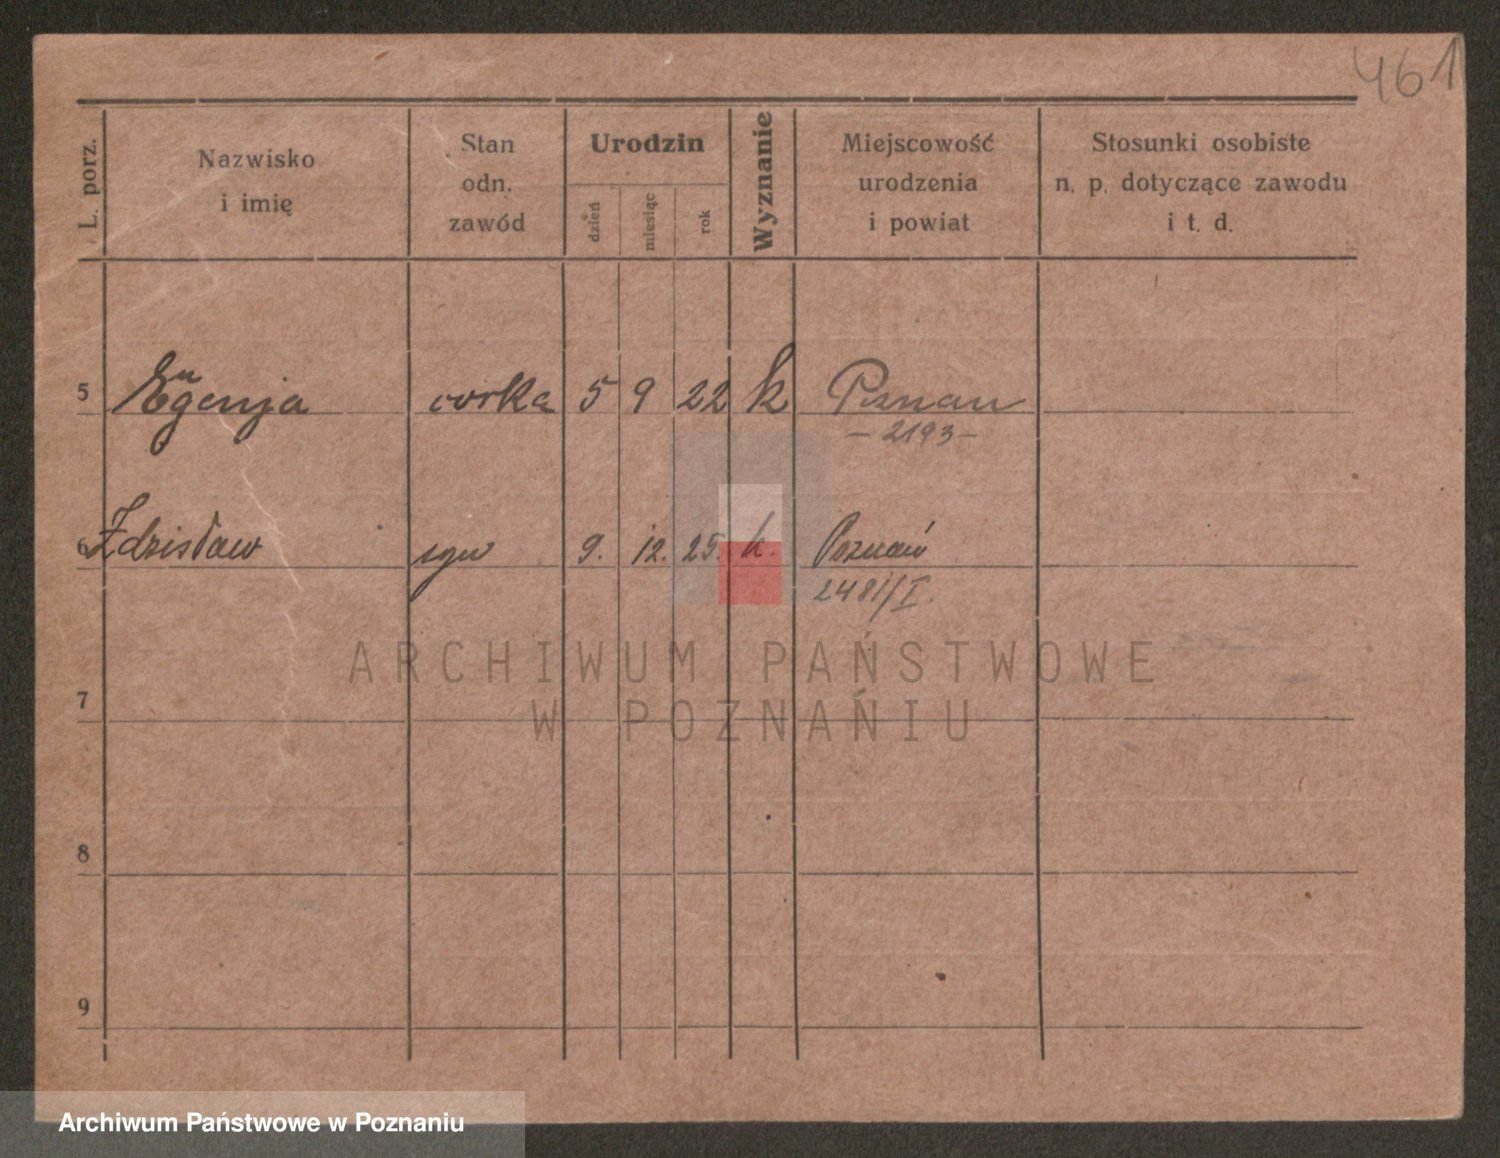 461
L. porz.
Nazwisko
i imię
Stan
odn.
zawód
Urodzin
dzień
miesiąc
rok
Wyznanie
Miejscowość
urodzenia
i powiat
Stosunki osobiste
n. p. dotyczące zawodu
i t. d.
5 Eugenja corka 5 9 22 k Poznan
- 2193 -
6 Zdzisław syn 9. 12. 25. k. Poznań
2481/I.
ARCHIWUM PAŃSTWOWE
W POZNANIU
7
8
9
Archiwum Państwowe w Poznaniu